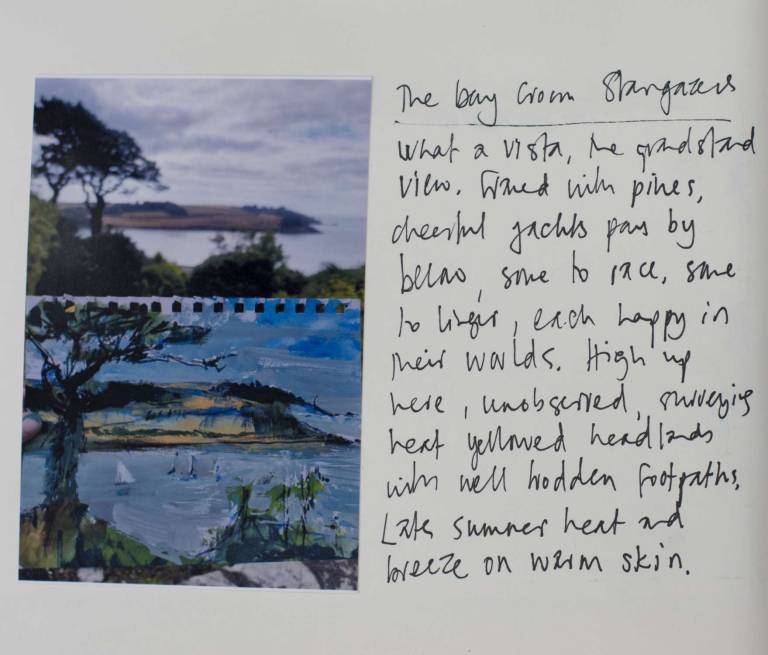 The bay from Stargazers
What a vista, the grandstand
view. Framed with pines,
cheerful yachts pass by
below, some to race, some
to linger, each happy in
their worlds. High up
here, unobserved, surveying
heat yellowed headlands
with well trodden footpaths.
Late summer heat and
breeze on warm skin.